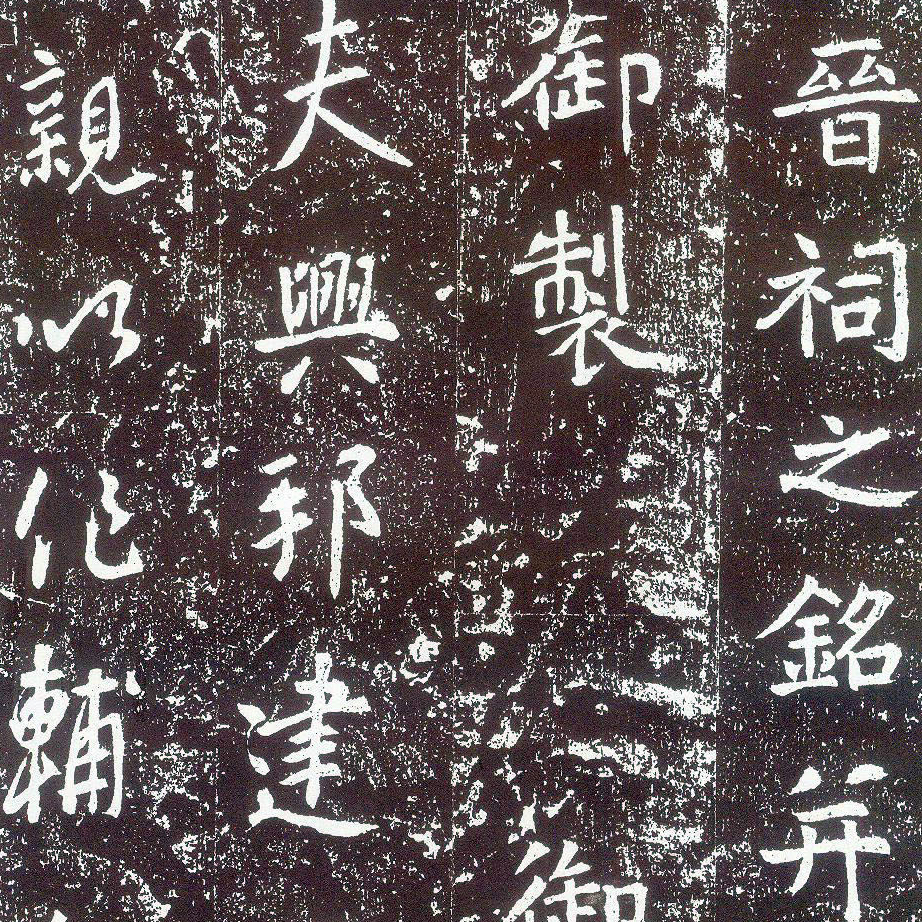 晉祠之銘并
御製 御
夫興邦建
親以作輔